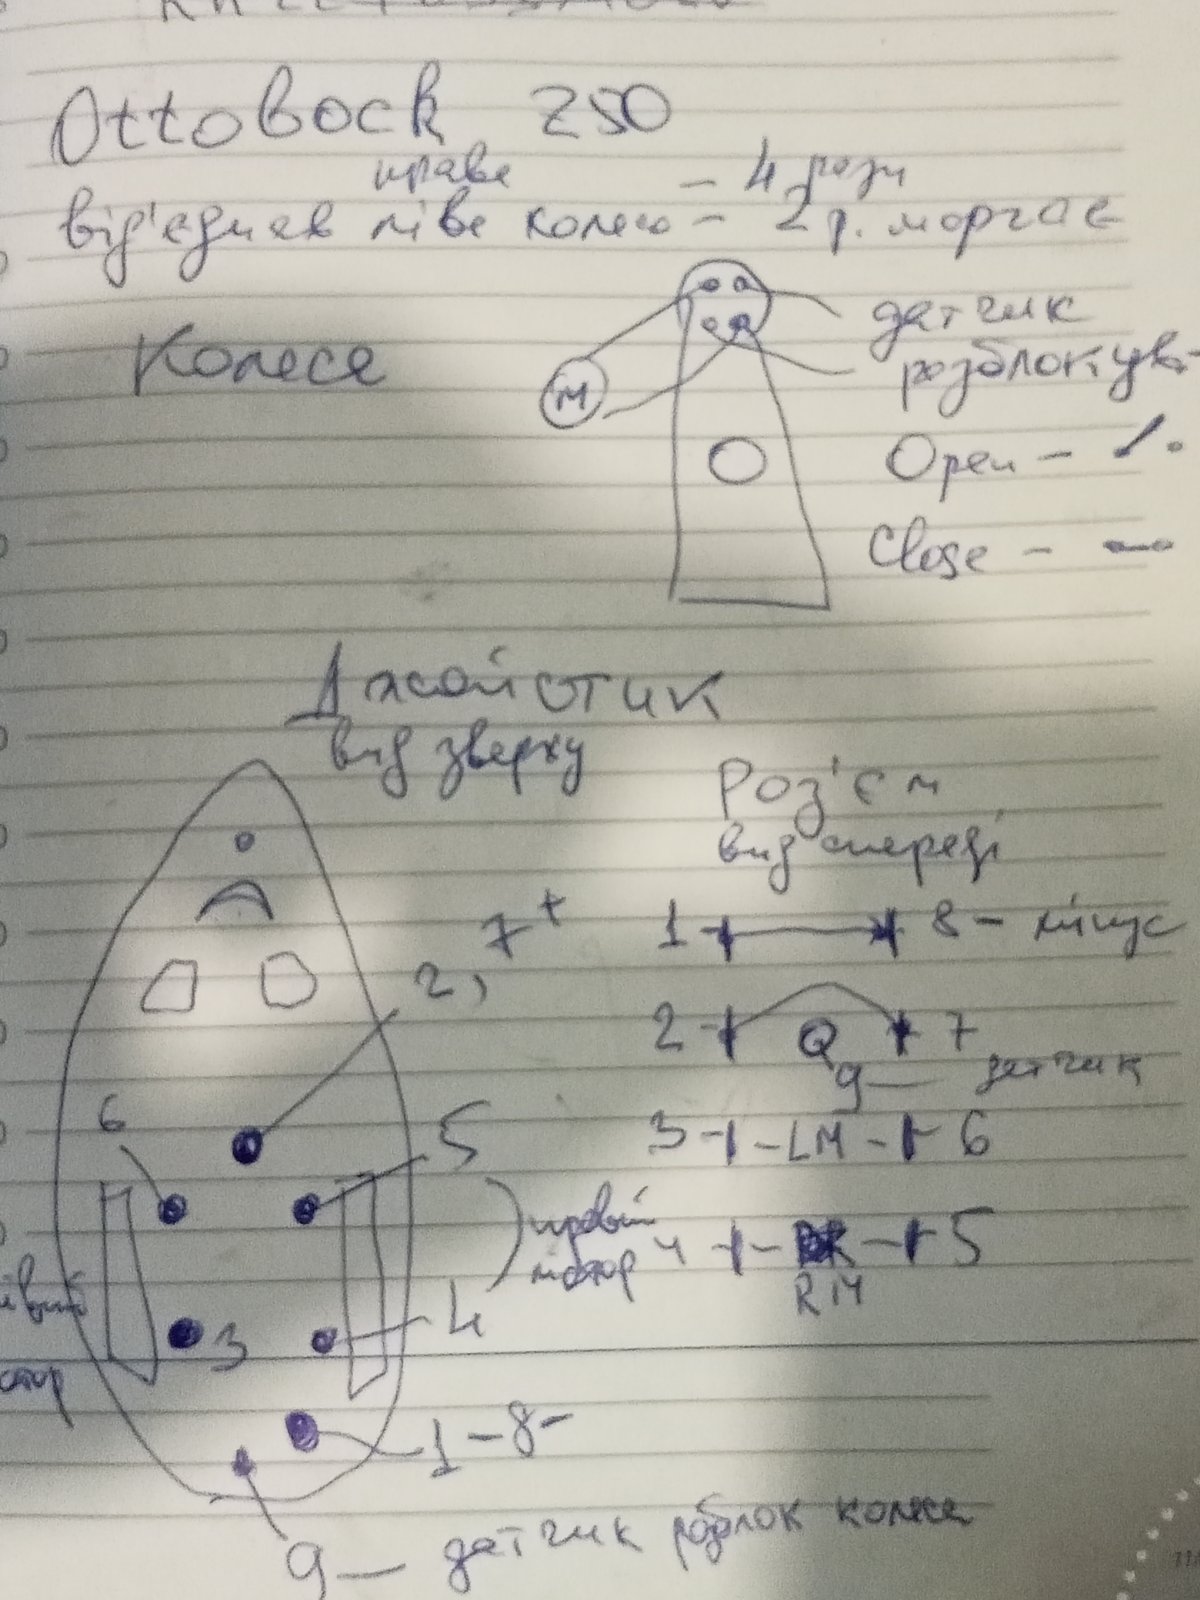 Ottobock Z50
праве - 4 рази
від'єднав ліве колесо - 2 р. моргає
Колеса
датчик
розблокув
M
Open -
Close -
Джойстик
вид зверху
Роз'єм
вид спереді
7+
2,
1 8 - мінус
2 7
9 — датчик
6
5
3 - LM - 6
правий
мотор
4 - RM - 5
3
4
1 - 8 -
9 — датчик розблок колеса